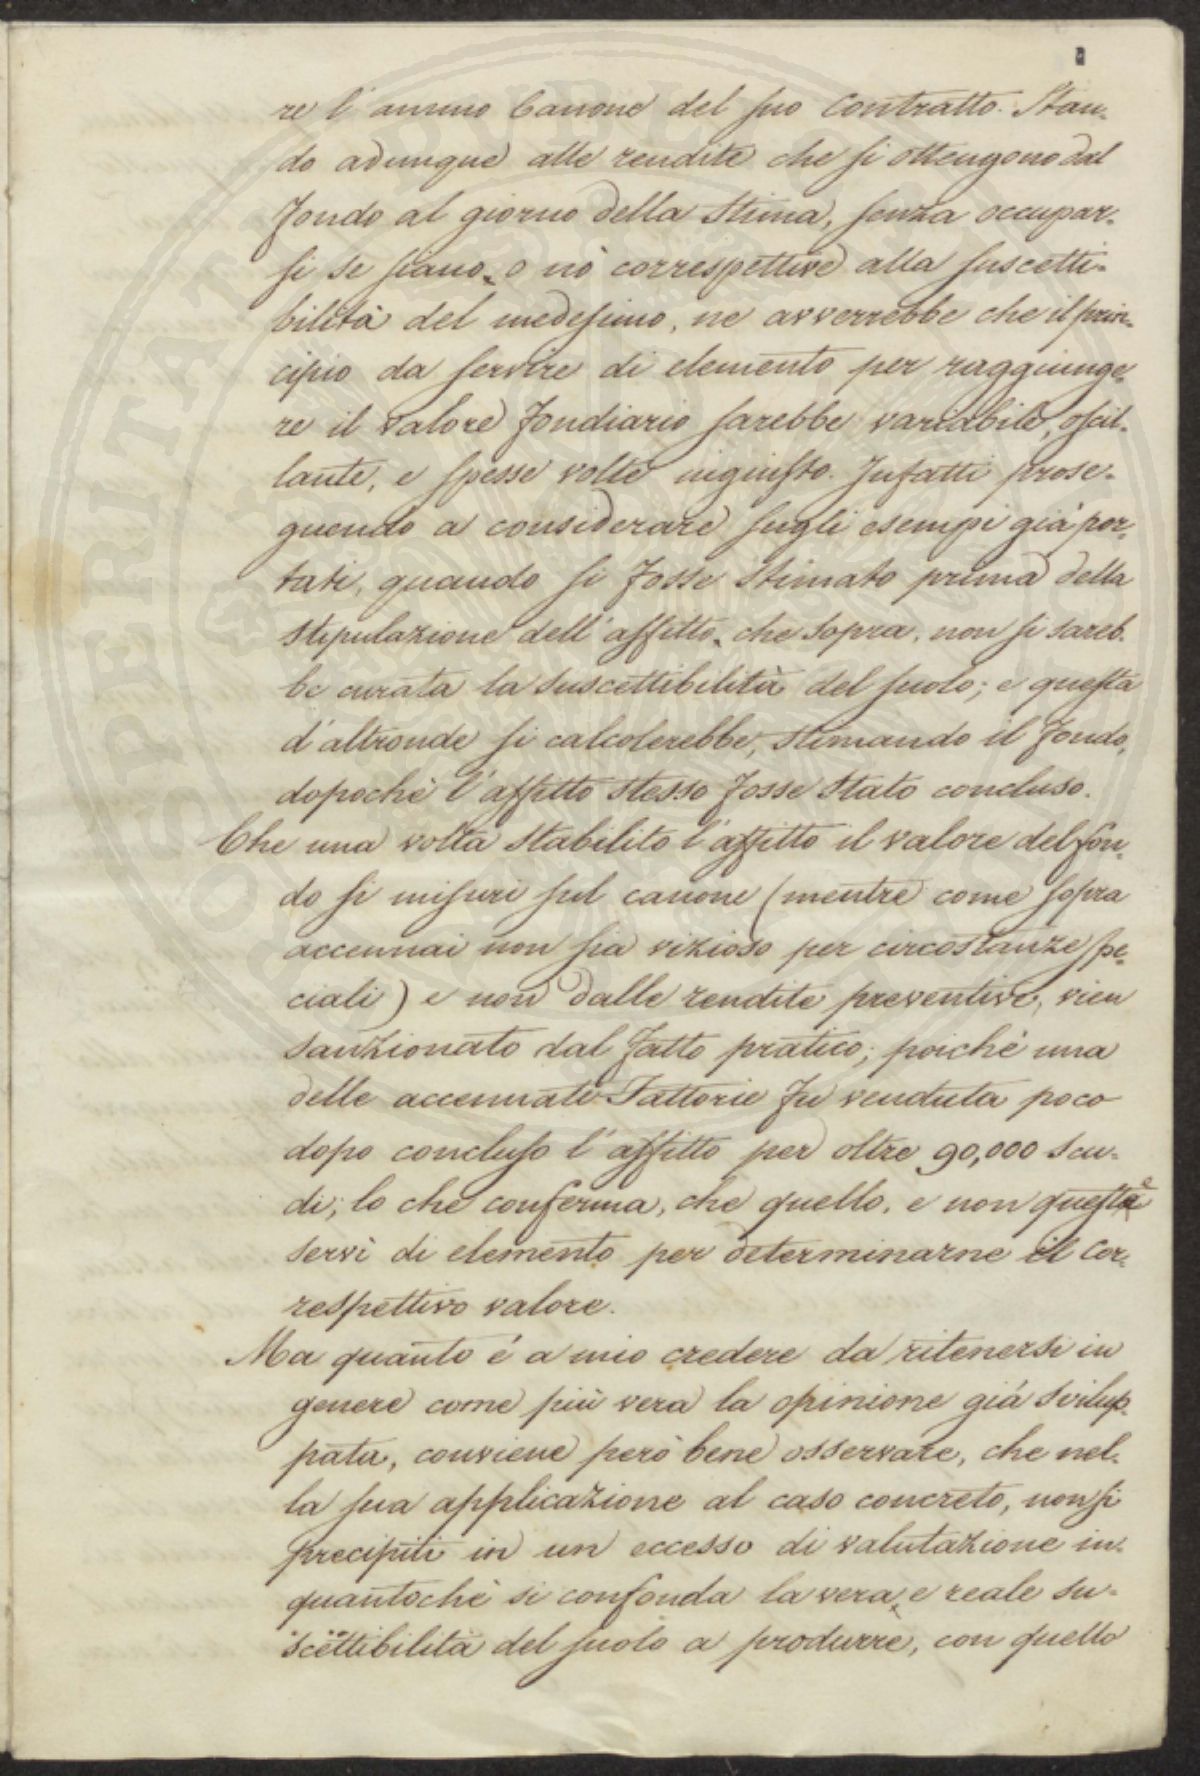 re l'annuo Canone del suo Contratto. Stan-
do adunque alle rendite che si ottengono dal
fondo al giorno della Stima, senza occupar-
si se siano, o nò correspettive alla suscetti-
bilità del medesimo, ne avverrebbe che il prin-
cipio da servire di elemento per raggiunge-
re il valore fondiario sarebbe variabile, oscil-
lante, e spesse volte ingiusto. Infatti prose-
guendo a considerare sugli esempi già por-
tati, quando si fosse stimato prima della
stipulazione dell'affitto, che sopra, non si sareb-
be curata la suscettibilità del suolo; e questa
d'altronde si calcolerebbe, stimando il fondo,
dopochè l'affitto stesso fosse stato concluso.
Che una volta stabilito l'affitto il valore del fon-
do si misuri sul canone (mentre come sopra
accennai non sia vizioso per circostanze spe-
ciali) e non dalle rendite preventive, vien
sanzionato dal fatto pratico; poichè una
delle accennate Fattorie fu venduta poco
dopo concluso l'affitto per oltre 90,000 scu-
di; lo che conferma, che quello, e non queste
servì di elemento per determinarne il cor-
respettivo valore.
Ma quanto è a mio credere da ritenersi in
genere come più vera la opinione già svilup-
pata, conviene però bene osservare, che nel-
la sua applicazione al caso concreto, non si
precipiti in un eccesso di valutazione in-
quantochè si confonda la vera, e reale su-
scettibilità del suolo a produrre, con quello
PROSPERITATI PUBLICAE